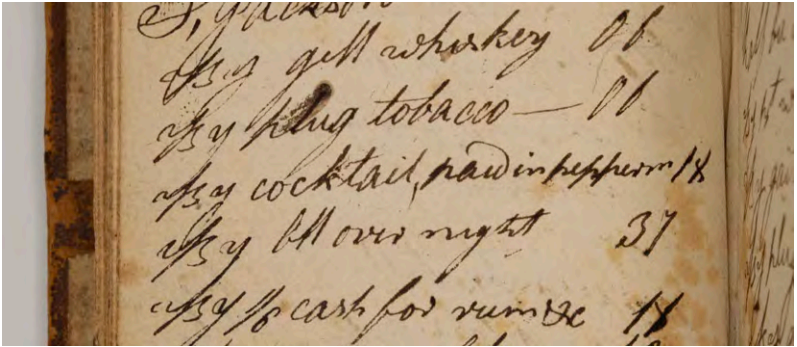 S, Jackson
By gill whiskey 06
By plug tobacco — 06
By cocktail, paid in 18
By bll over night 37
By cash for rum &c 18